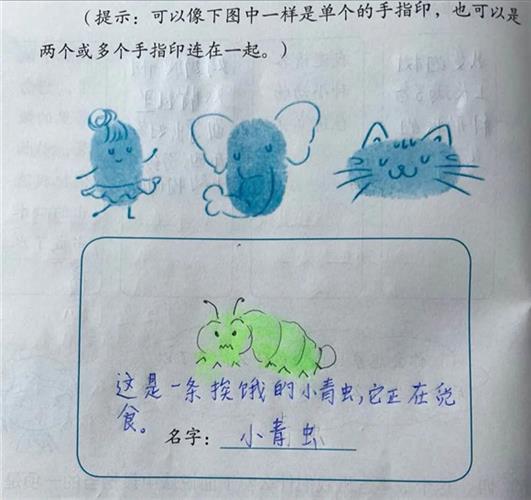 （提示：可以像下图中一样是单个的手指印，也可以是
两个或多个手指印连在一起。）
这是一条挨饿的小青虫，它正在绝
食。
名字：小青虫